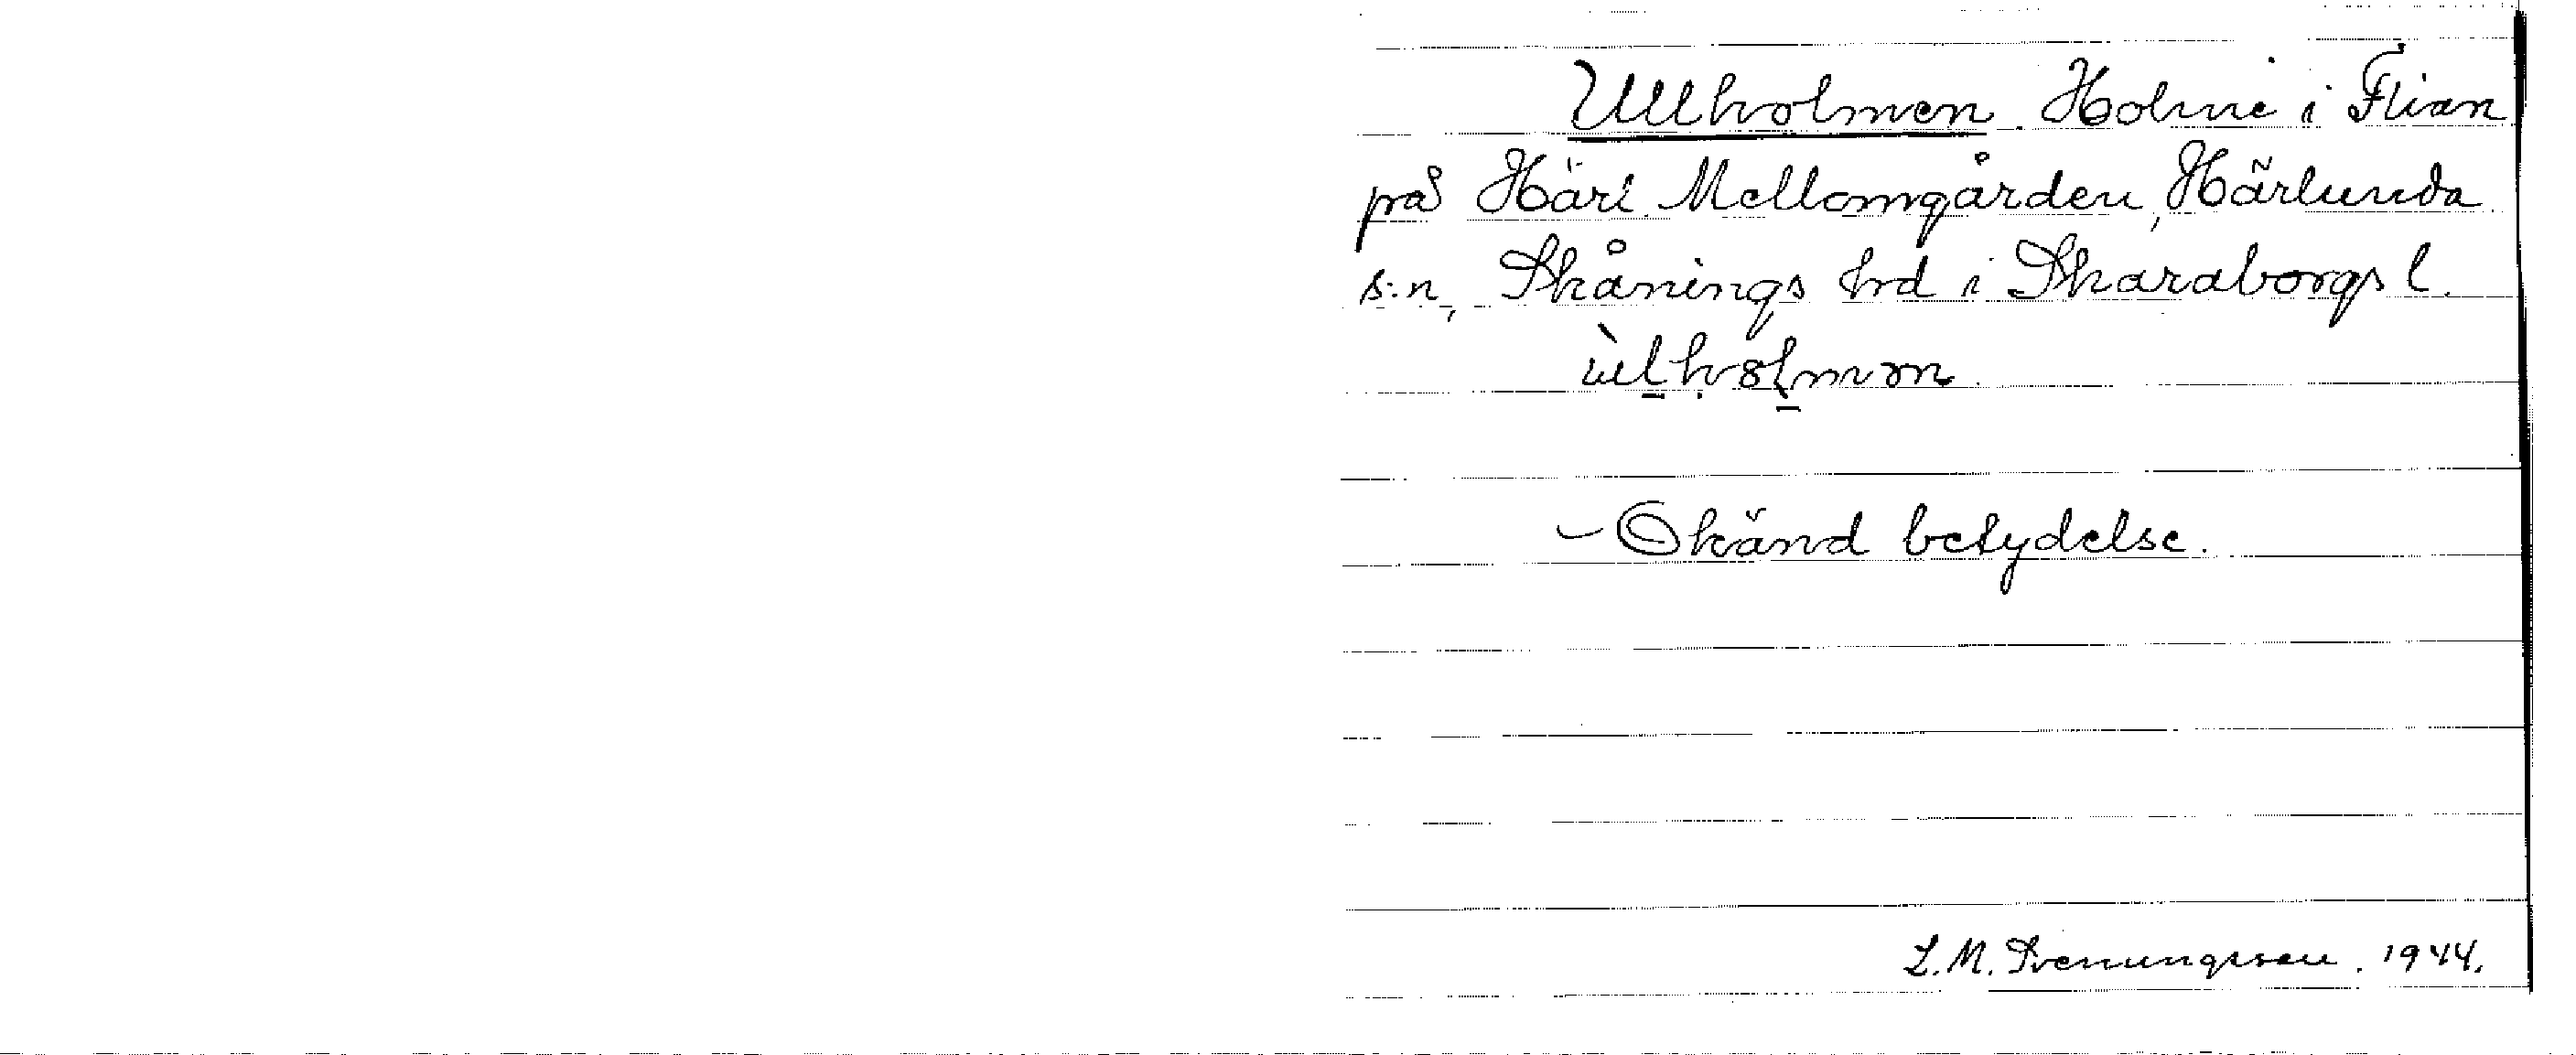 Ullholmen. Holme i Flian
på Härl. Mellomgården, Härlunda
s:n, Skånings hrd i Skaraborgs l.
- Okänd betydelse.
L.M. Svenungsson. 1944.